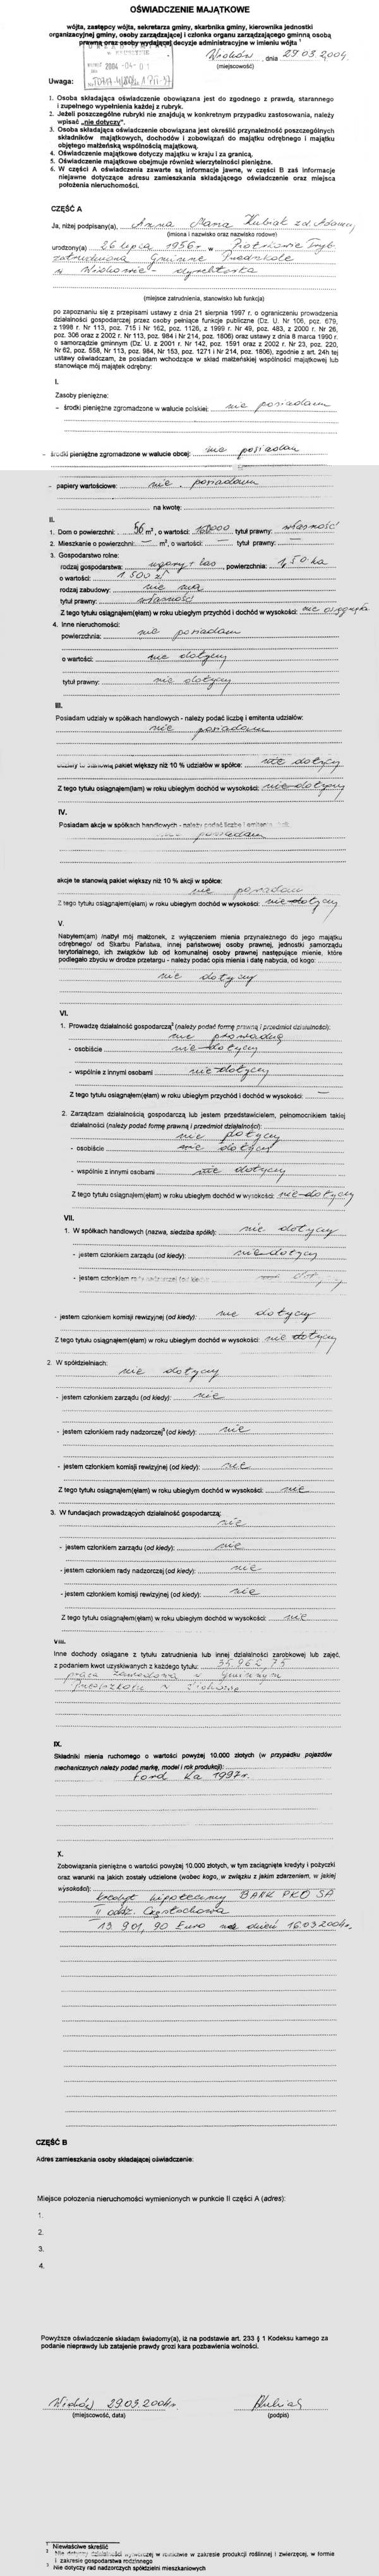 OŚWIADCZENIE MAJĄTKOWE
wójta, zastępcy wójta, sekretarza gminy, skarbnika gminy, kierownika jednostki
organizacyjnej gminy, osoby zarządzającej i członka organu zarządzającego gminną osobą
prawną oraz osoby wydającej decyzje administracyjne w imieniu wójta 1
dnia 29.03.2004.
(miejscowość)
2004 -04- 01
Uwaga:
1. Osoba składająca oświadczenie obowiązana jest do zgodnego z prawdą, starannego
i zupełnego wypełnienia każdej z rubryk.
2. Jeżeli poszczególne rubryki nie znajdują w konkretnym przypadku zastosowania, należy
wpisać „nie dotyczy".
3. Osoba składająca oświadczenie obowiązana jest określić przynależność poszczególnych
składników majątkowych, dochodów i zobowiązań do majątku odrębnego i majątku
objętego małżeńską wspólnością majątkową.
4. Oświadczenie majątkowe dotyczy majątku w kraju i za granicą.
5. Oświadczenie majątkowe obejmuje również wierzytelności pieniężne.
6. W części A oświadczenia zawarte są informacje jawne, w części B zaś informacje
niejawne dotyczące adresu zamieszkania składającego oświadczenie oraz miejsca
położenia nieruchomości.
CZĘŚĆ A
Ja, niżej podpisany(a), Anna Maria Kubiak z d. Adamus
(imiona i nazwisko oraz nazwisko rodowe)
urodzony(a) 26 lipca 1956 r w Piotrkowie Tryb.
zatrudniona Gminne Przedszkole
- dyrektorka
(miejsce zatrudnienia, stanowisko lub funkcja)
po zapoznaniu się z przepisami ustawy z dnia 21 sierpnia 1997 r. o ograniczeniu prowadzenia
działalności gospodarczej przez osoby pełniące funkcje publiczne (Dz. U. Nr 106, poz. 679,
z 1998 r. Nr 113, poz. 715 i Nr 162, poz. 1126, z 1999 r. Nr 49, poz. 483, z 2000 r. Nr 26,
poz. 306 oraz z 2002 r. Nr 113, poz. 984 i Nr 214, poz. 1806) oraz ustawy z dnia 8 marca 1990 r.
o samorządzie gminnym (Dz. U. z 2001 r. Nr 142, poz. 1591 oraz z 2002 r. Nr 23, poz. 220,
Nr 62, poz. 558, Nr 113, poz. 984, Nr 153, poz. 1271 i Nr 214, poz. 1806), zgodnie z art. 24h tej
ustawy oświadczam, że posiadam wchodzące w skład małżeńskiej wspólności majątkowej lub
stanowiące mój majątek odrębny:
I.
Zasoby pieniężne:
- środki pieniężne zgromadzone w walucie polskiej: nie posiadam
- środki pieniężne zgromadzone w walucie obcej: nie posiadam
- papiery wartościowe: nie posiadam
na kwotę:
II.
1. Dom o powierzchni: 56 m², o wartości: 100000 tytuł prawny: własność
2. Mieszkanie o powierzchni: — m², o wartości: — tytuł prawny: —
3. Gospodarstwo rolne:
rodzaj gospodarstwa: ugory + las powierzchnia: 1,50 ha
o wartości: 1 500 zł
rodzaj zabudowy: nie ma
tytuł prawny: własność
Z tego tytułu osiągnąłem(ęłam) w roku ubiegłym przychód i dochód w wysokości: nie osiągnęła
4. Inne nieruchomości:
powierzchnia: nie posiadam
o wartości: nie dotyczy
tytuł prawny: nie dotyczy
III.
Posiadam udziały w spółkach handlowych - należy podać liczbę i emitenta udziałów:
nie posiadam
udziały te stanowią pakiet większy niż 10 % udziałów w spółce: nie dotyczy
Z tego tytułu osiągnąłem(łam) w roku ubiegłym dochód w wysokości: nie dotyczy
IV.
Posiadam akcje w spółkach handlowych - należy podać liczbę i emitenta akcji:
posiadam
akcje te stanowią pakiet większy niż 10 % akcji w spółce:
nie posiadam
Z tego tytułu osiągnąłem(łam) w roku ubiegłym dochód w wysokości: nie dotyczy
V.
Nabyłem(am) /nabył mój małżonek, z wyłączeniem mienia przynależnego do jego majątku
odrębnego/ od Skarbu Państwa, innej państwowej osoby prawnej, jednostki samorządu
terytorialnego, ich związków lub od komunalnej osoby prawnej następujące mienie, które
podlegało zbyciu w drodze przetargu - należy podać opis mienia i datę nabycia, od kogo:
nie dotyczy
VI.
1. Prowadzę działalność gospodarczą² (należy podać formę prawną i przedmiot działalności):
nie prowadzę
- osobiście nie dotyczy
- wspólnie z innymi osobami nie dotyczy
Z tego tytułu osiągnąłem(ęłam) w roku ubiegłym przychód i dochód w wysokości: —
2. Zarządzam działalnością gospodarczą lub jestem przedstawicielem, pełnomocnikiem takiej
działalności (należy podać formę prawną i przedmiot działalności):
nie dotyczy
- osobiście nie dotyczy
- wspólnie z innymi osobami nie dotyczy
Z tego tytułu osiągnąłem(ęłam) w roku ubiegłym dochód w wysokości: nie dotyczy
VII.
1. W spółkach handlowych (nazwa, siedziba spółki): nie dotyczy
- jestem członkiem zarządu (od kiedy): nie dotyczy
- jestem członkiem rady nadzorczej (od kiedy):
- jestem członkiem komisji rewizyjnej (od kiedy): nie dotyczy
Z tego tytułu osiągnąłem(ęłam) w roku ubiegłym dochód w wysokości: nie dotyczy
2. W spółdzielniach:
nie dotyczy
- jestem członkiem zarządu (od kiedy): nie
- jestem członkiem rady nadzorczej³ (od kiedy): nie
- jestem członkiem komisji rewizyjnej (od kiedy): nie
Z tego tytułu osiągnąłem(ęłam) w roku ubiegłym dochód w wysokości: nie
3. W fundacjach prowadzących działalność gospodarczą:
nie
- jestem członkiem zarządu (od kiedy): nie
- jestem członkiem rady nadzorczej (od kiedy): nie
- jestem członkiem komisji rewizyjnej (od kiedy): nie
Z tego tytułu osiągnąłem(ęłam) w roku ubiegłym dochód w wysokości: nie
VIII.
Inne dochody osiągane z tytułu zatrudnienia lub innej działalności zarobkowej lub zajęć,
z podaniem kwot uzyskiwanych z każdego tytułu: 35.962,75
praca zawodowa w Gminnym
Przedszkolu w
IX.
Składniki mienia ruchomego o wartości powyżej 10.000 złotych (w przypadku pojazdów
mechanicznych należy podać markę, model i rok produkcji):
Ford Ka 1997r.
X.
Zobowiązania pieniężne o wartości powyżej 10.000 złotych, w tym zaciągnięte kredyty i pożyczki
oraz warunki na jakich zostały udzielone (wobec kogo, w związku z jakim zdarzeniem, w jakiej
wysokości):
kredyt hipoteczny BANK PKO SA
II oddz. Częstochowa
13 901,90 Euro na dzień 16.03.2004r.
CZĘŚĆ B
Adres zamieszkania osoby składającej oświadczenie:
Miejsce położenia nieruchomości wymienionych w punkcie II części A (adres):
1.
2.
3.
4.
Powyższe oświadczenie składam świadomy(a), iż na podstawie art. 233 § 1 Kodeksu karnego za
podanie nieprawdy lub zatajenie prawdy grozi kara pozbawienia wolności.
29.03.2004r. Kubiak
(miejscowość, data) (podpis)
1 Niewłaściwe skreślić
2 Nie dotyczy działalności wytwórczej w rolnictwie w zakresie produkcji roślinnej i zwierzęcej, w formie
i zakresie gospodarstwa rodzinnego
3 Nie dotyczy rad nadzorczych spółdzielni mieszkaniowych